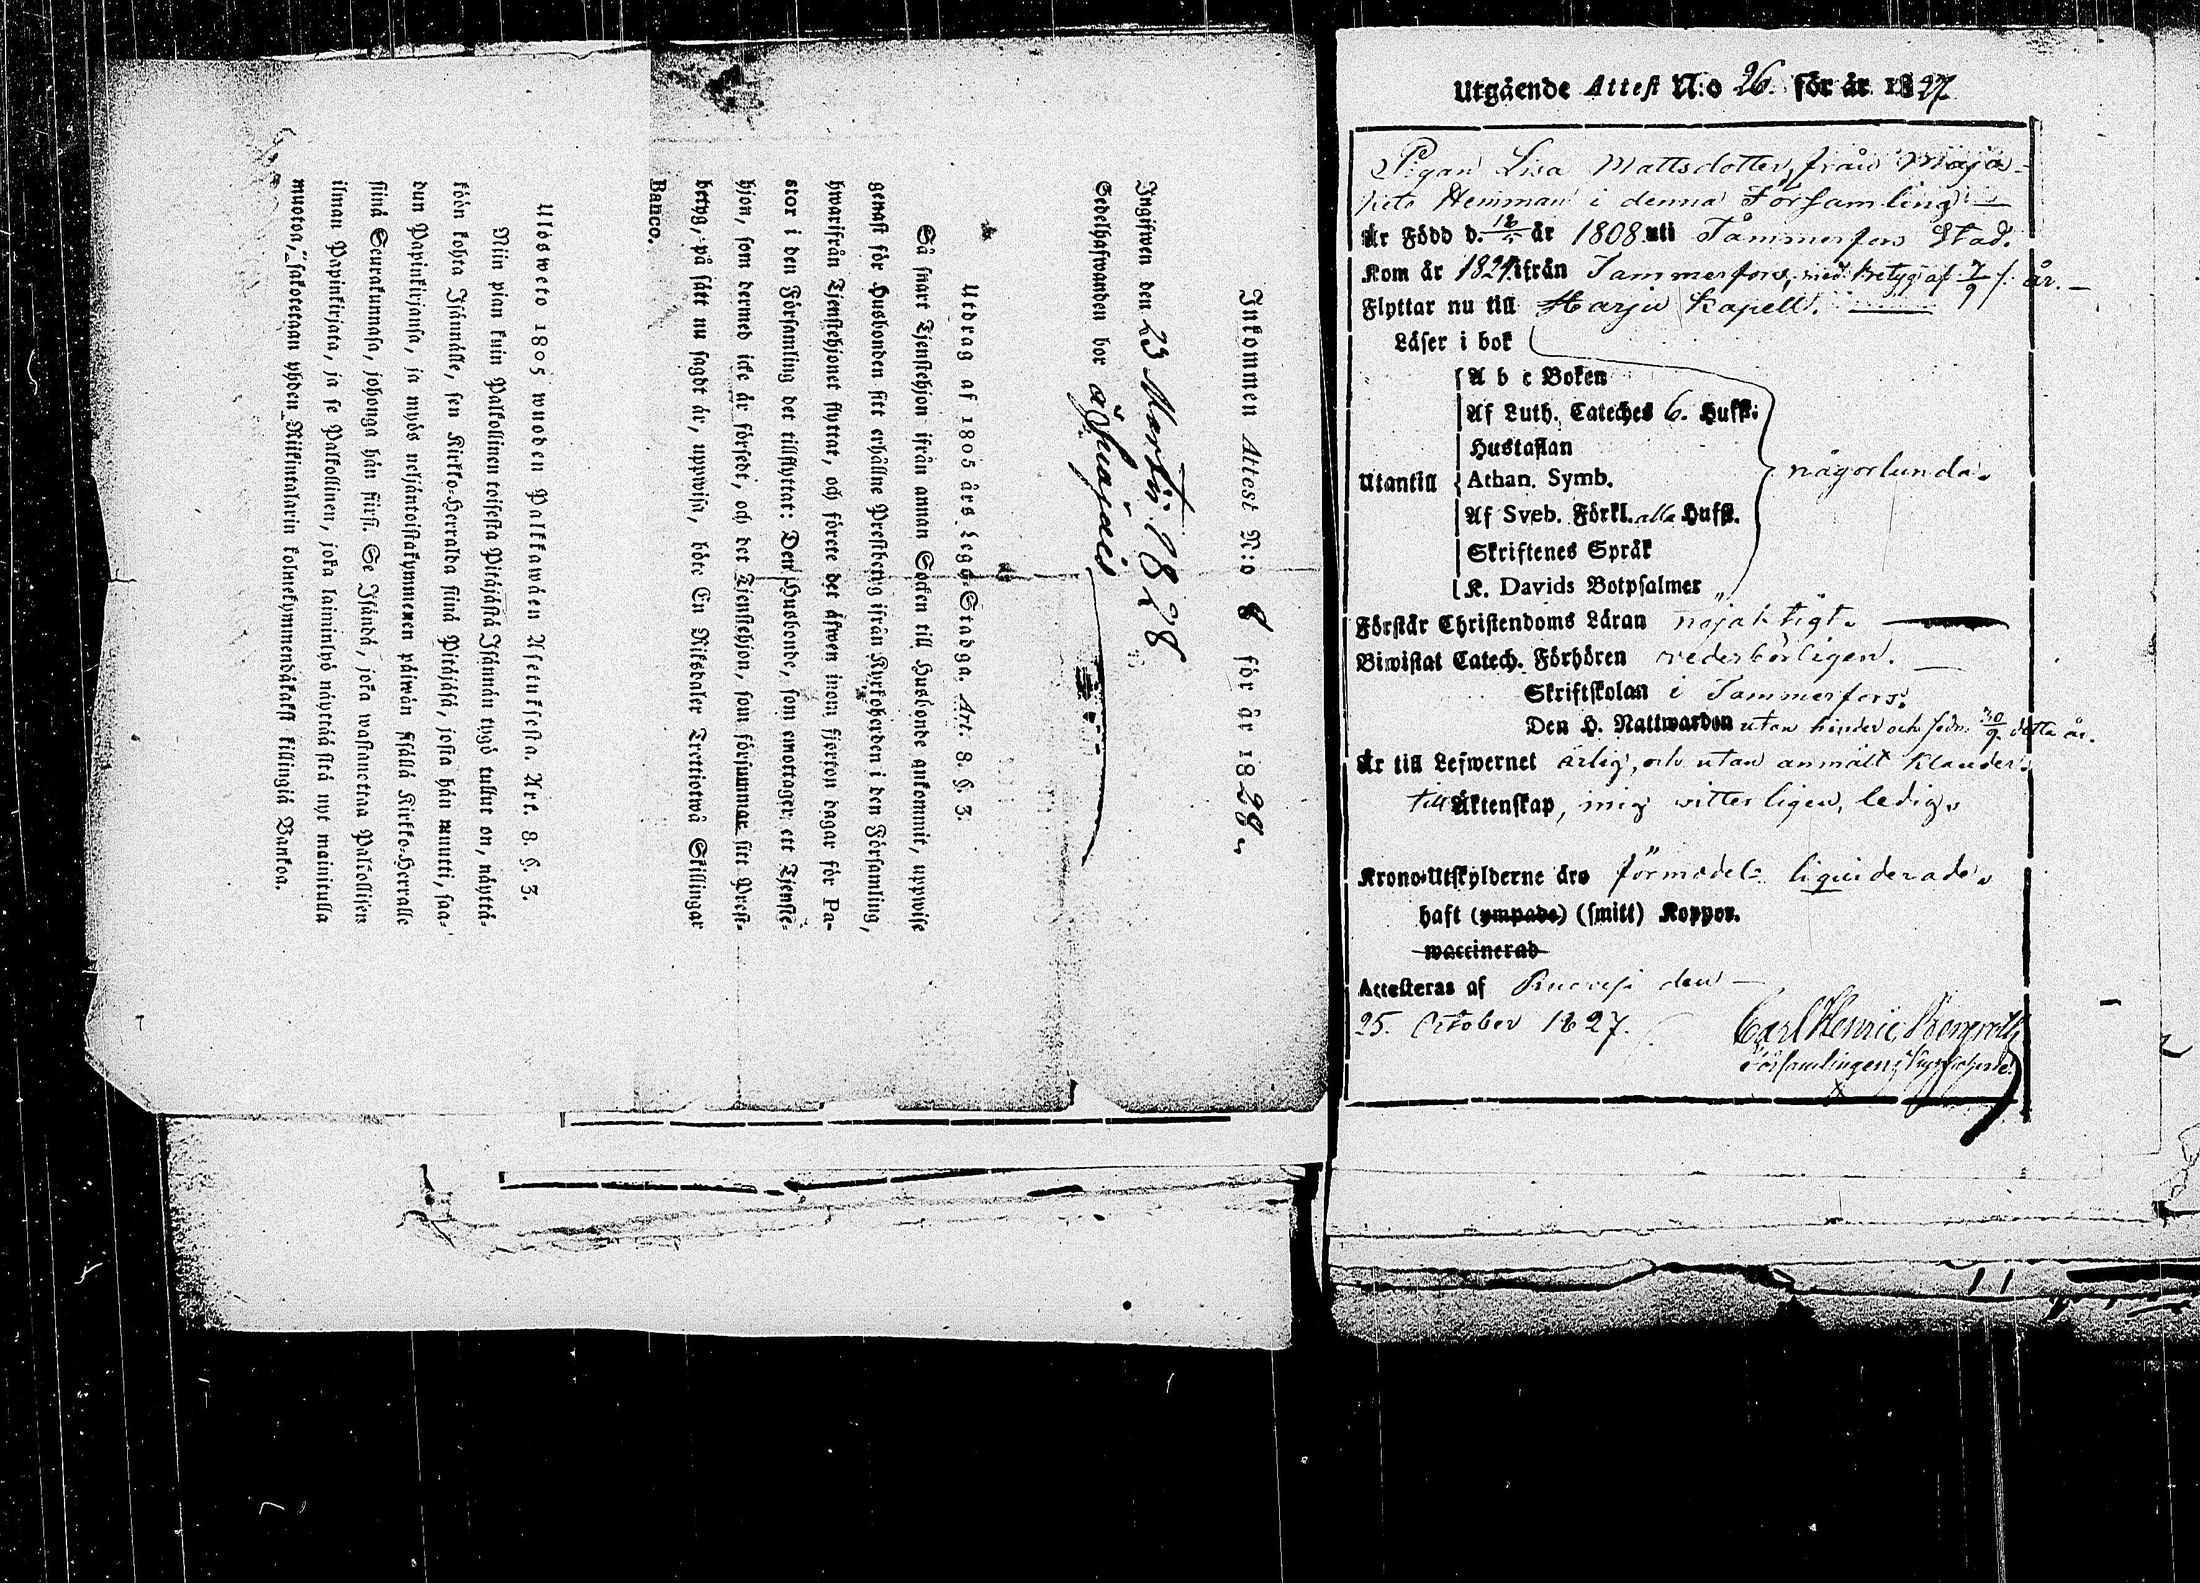 Inkommen Attest N:o 8 för år 1828.
Ingifwen den 23 Martii 1828
Sedelhafwanden bor å
Utdrag af 1805 års Lego-Stadga. Art. 8. §. 3.
Så snart Tjenstehjon ifrån annan Socken till Husbonde ankommit, uppwise
genast för Husbonden sitt erhållne Prestbetyg ifrån Kyrkoherden i den Församling,
hwarifrån Tjenstehjonet flyttat, och förete det äfwen inom fjorton dagar för Pa-
stor i den Församling det tillflyttar: Den Husbonde, som emottager ett Tjenste-
hjon, som dermed icke är försedt, och det Tjenstehjon, som försummar sitt Prest-
betyg, på sätt nu sagdt är, uppwisa, böte En Riksdaler Trettiotwå Skillingar
Banco.
Ulosweto 1805 wuoden Palkkawäen Asetuksesta. Art. 8. §. 3.
Niin pian kuin Palkollinen toisesta Pitäjästä Isännän tygö tullut on, näyttä-
köön kohta Isännälle, sen Kirkko-Herralda siinä Pitäjäsä, josta hän muutti, saa-
dun Papinkirjansa, ja myös neljäntoistakymmenen päiwän sisällä Kirkko-Herralle
siinä Seurakunnasa, johonga hän siirsi Se Isändä, joka wastanottaa Palkollisen
ilman Papinkirjata, ja se Palkollinen, joka laiminlyö näyttää sitä nyt mainitulla
muotoa, sakotetaan yhden Riikintalarin kolmekymmendäkaksi killingiä Bankoa.
Utgående Attest N:o 26. för år 1827
Pigan Lisa Mattsdotter, från Maja-
niets Hemman i denna Församling
Är Född d. 18/5 år 1808 uti Tammerfors Stad.
Kom år 1827 ifrån Tammerfors, med betyg af 7/9 s. år.
Flyttar nu till Harju Kapell.
Läser i bok
A b c Boken
Af Luth. Cateches 6. Hufst.
Hustaflan
Utantill Athan. Symb. någorlunda.
Af Sveb. Förkl. alla Hufst.
Skriftenes Språk
K. Davids Botpsalmer
Förstår Christendoms Läran nöjaktigt.
Biwistat Catech. Förhören vederbörligen.
Skriftskolan i Tammerfors.
Den H. Nattwarden utan hinder och sedn. 30/9. detta år.
Är till Lefwernet ärlig, och utan anmält klander.
till Äktenskap, mig witterligen, ledig.
Krono-Utskylderne äro förmodel: liquiderade.
haft (ympade) (smitt) Koppor.
waccinerad
Attesteras af Ruovesi den
25. October 1827. Carl Henric Bergroth
Församlingens Kyrkoherde.